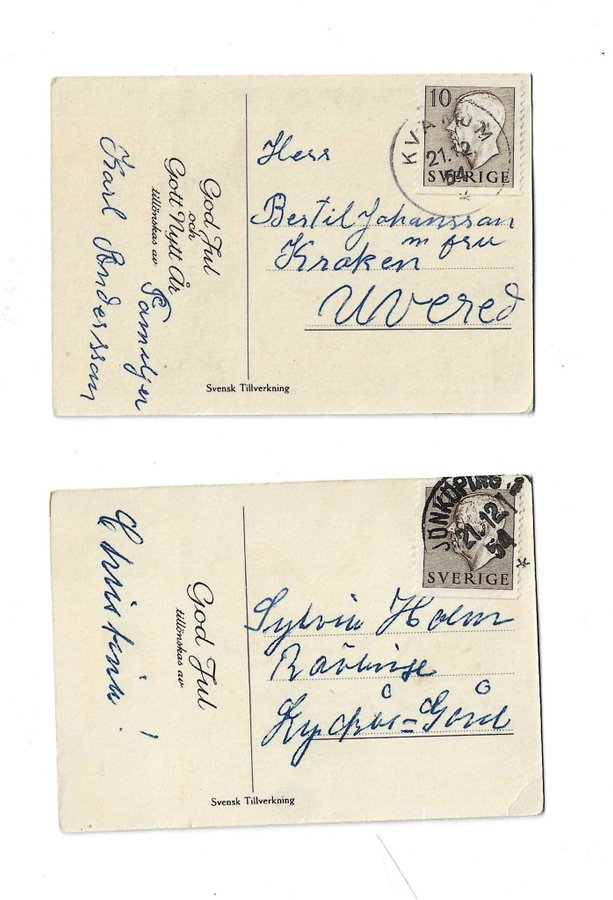 10
SVERIGE
KVÄNUM
21.12
54
*
Herr
Bertil Johansson
m fru
Kraken
Uvered
God Jul
och
Gott Nytt År
tillönskas av
Familjen
Karl Andersson
Svensk Tillverkning
JÖNKÖPING 1
21.12
54
*
SVERIGE
Sylvia Holm
Gård
God Jul
tillönskas av
Christina!
Svensk Tillverkning